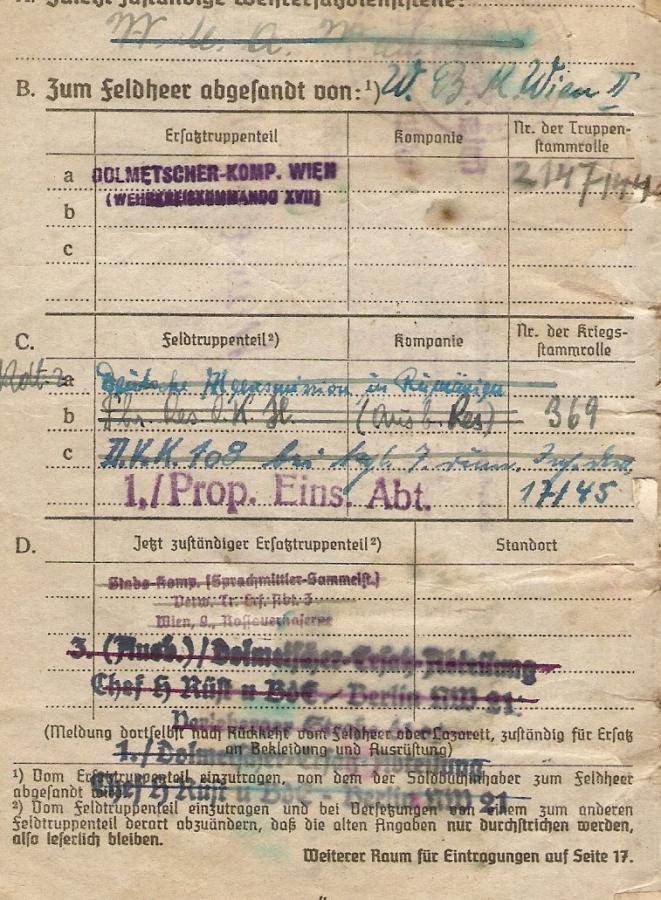 A. Zuletzt zuständige Wehrersatzdienststelle:
B. Zum Feldheer abgesandt von:¹) W. Wien II
Ersatztruppenteil Kompanie Nr. der Truppen-
stammrolle
a DOLMETSCHER-KOMP. WIEN
(WEHRKREISKOMMANDO XVII)
b
c
C. Feldtruppenteil²) Kompanie Nr. der Kriegs-
stammrolle
a Deutsche in Rumänien
b 369
c D.K.K. 108 bei 7. rum. Inf. Div.
1./Prop. Eins. Abt. 17/45
D. Jetzt zuständiger Ersatztruppenteil²) Standort
Stabs-Komp. (Sprachmittler-Sammelst.)
Verw. Tr. Ers. Abt. 3
Wien, 9., Rossauerkaserne
3. (Ausb.)/Dolmetscher-Ersatz-Abteilung
Chef H Rüst u BdE - Berlin NW 21
(Meldung dortselbst nach Rückkehr vom Feldheer oder Lazarett, zuständig für Ersatz
an Bekleidung und Ausrüstung)
1./Dolmetscher-Ersatz-Abteilung
¹) Vom Ersatztruppenteil einzutragen, von dem der Soldbuchinhaber zum Feldheer
abgesandt wird.
Chef H Rüst u BdE - Berlin NW 21
²) Vom Feldtruppenteil einzutragen und bei Versetzungen von einem zum anderen
Feldtruppenteil derart abzuändern, daß die alten Angaben nur durchstrichen werden,
also leserlich bleiben.
Weiterer Raum für Eintragungen auf Seite 17.